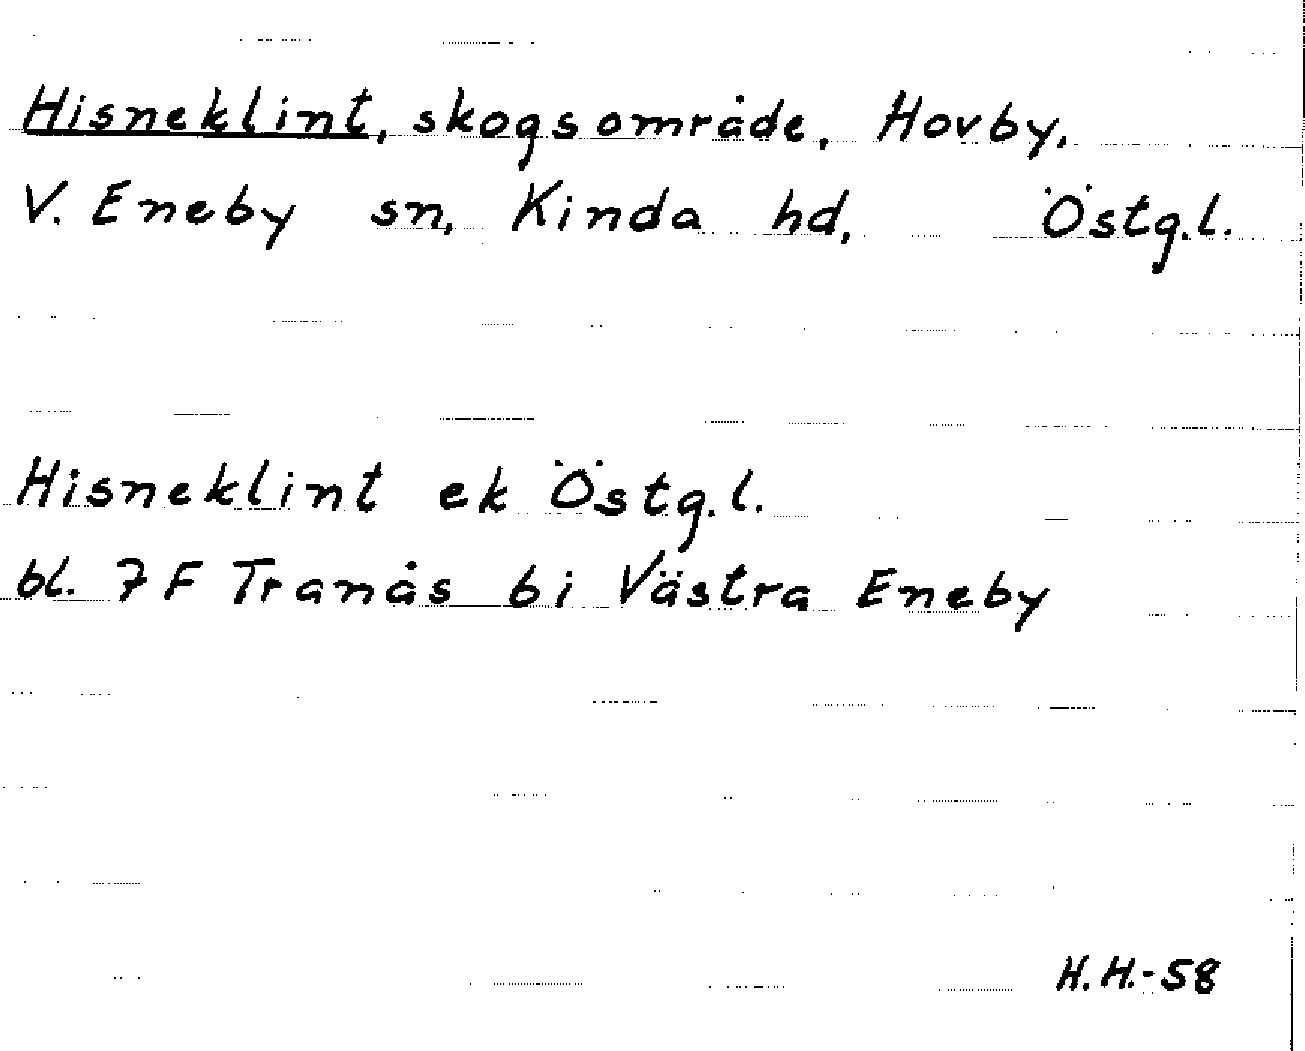 Hisneklint, skogsområde, Hovby,
V. Eneby sn, Kinda hd, Östg.l.
Hisneklint ek Östg.l.
bl. 7 F Tranås 6i Västra Eneby
H.H.-58